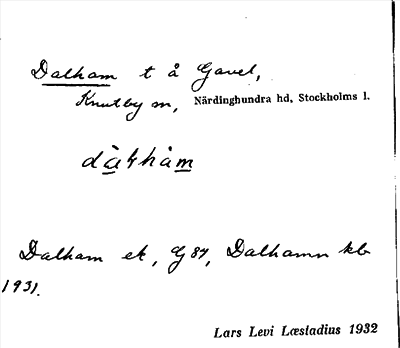 Dalham t å Gavel,
Knutby sn, Närdinghundra hd, Stockholms l.
dàlhàm
Dalham ek, G 87, Dalhamn kb
1931.
Lars Levi Læstadius 1932